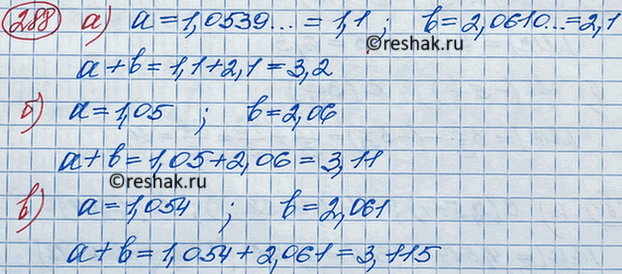 288 а) a = 1,0539... = 1,1 ; b = 2,0610... = 2,1
©reshak.ru
a + b = 1,1 + 2,1 = 3,2
б) a = 1,05 ; b = 2,06
a + b = 1,05 + 2,06 = 3,11
©reshak.ru
в) a = 1,054 ; b = 2,061
a + b = 1,054 + 2,061 = 3,115